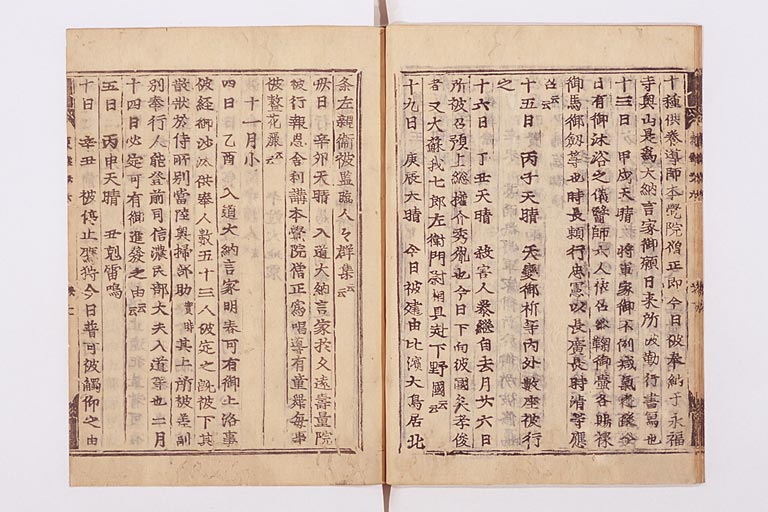 十種供養導師本覺院僧正即今日被奉納于永福
寺奥山是為大納言家御願日来所被勤行書写也
十三日　甲戌天晴　将軍家御不例減氣
日有御沐浴之儀醫師六人依召参鞠御霊各賜禄
御馬御劔等也時長頼行忠憲以長廣長時清等應
召云云
十五日　丙子天晴　天變御祈等内外數座被行
之
十六日　丁丑天晴　故宮人景継自去月廿六日
所被召預上総権介秀胤也今日下向彼國矣孝俊
者又大蘇我七郎左衛門尉相具赴下野國云云
十九日　庚辰天晴　今日被建由比濱大鳥居北
条左親衛被監臨人々群集云云
廿日行　辛卯天晴　入道大納言家於久遠壽量院
被行報恩舎利講本覺院僧正為唱導有童舞毎事
被整花麗云云
十一月小
四日　乙酉　入道大納言家明春可有御上洛事
被経御沙汰供奉人數五十三人被定之既被下其
散状於侍所別當陸奥掃部助實時其上所被差副
別奉行人能登前司信濃民部大夫入道等也二月
十四日必定可有御進發之由云云
五日　丙申天晴　丑剋雷鳴
十日　辛丑　被停止鷹狩今日普可被觸仰之由